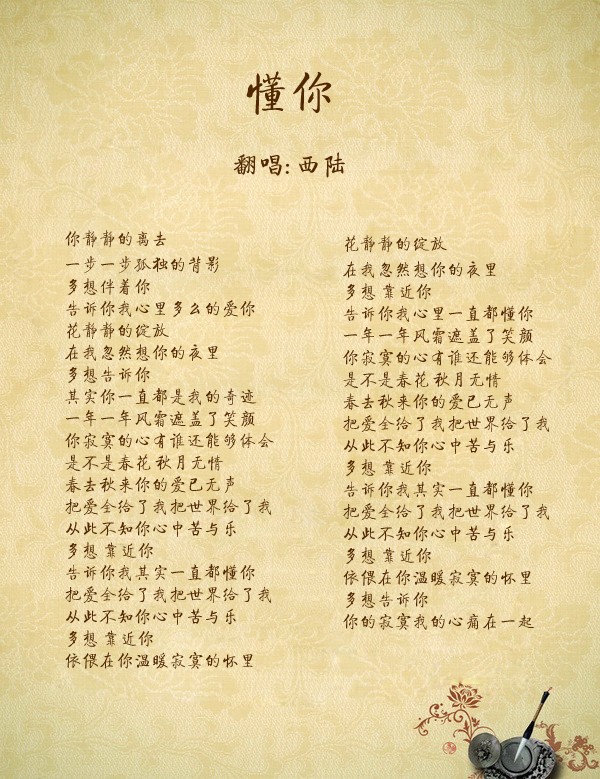 懂你
翻唱: 西陆
你静静的离去
一步一步孤独的背影
多想伴着你
告诉你我心里多么的爱你
花静静的绽放
在我忽然想你的夜里
多想告诉你
其实你一直都是我的奇迹
一年一年风霜遮盖了笑颜
你寂寞的心有谁还能够体会
是不是春花秋月无情
春去秋来你的爱已无声
把爱全给了我把世界给了我
从此不知你心中苦与乐
多想 靠近你
告诉你我其实一直都懂你
把爱全给了我把世界给了我
从此不知你心中苦与乐
多想 靠近你
依偎在你温暖寂寞的怀里
花静静的绽放
在我忽然想你的夜里
多想 靠近你
告诉你我心里一直都懂你
一年一年风霜遮盖了笑颜
你寂寞的心有谁还能够体会
是不是春花秋月无情
春去秋来你的爱已无声
把爱全给了我把世界给了我
从此不知你心中苦与乐
多想 靠近你
告诉你我其实一直都懂你
把爱全给了我把世界给了我
从此不知你心中苦与乐
多想 靠近你
依偎在你温暖寂寞的怀里
多想告诉你
你的寂寞我的心痛在一起